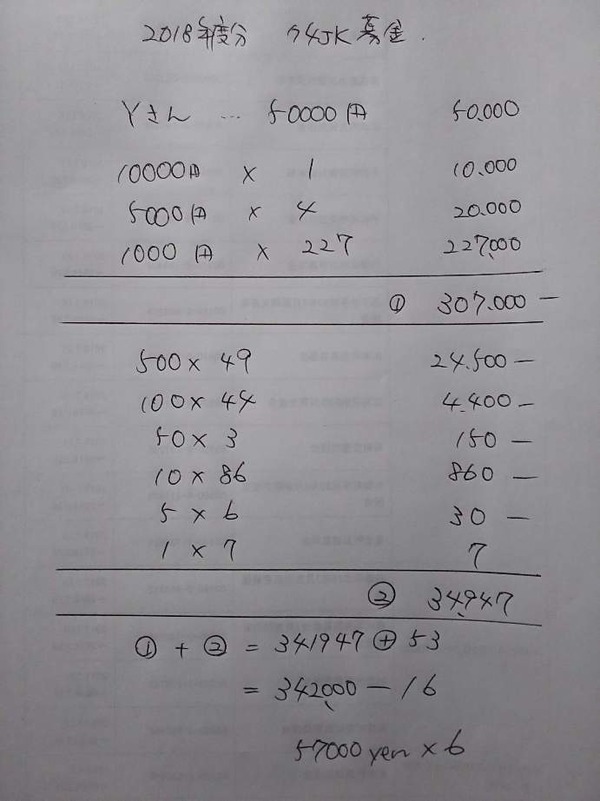 2018年度分 94JK募金.
Yさん … 50000円 50.000
10000円 × 1 10.000
5000円 × 4 20.000
1000円 × 227 227,000
① 307.000 —
500 × 49 24.500 —
100 × 44 4.400 —
50 × 3 150 —
10 × 86 860 —
5 × 6 30 —
1 × 7 7
② 34,947
① + ② = 341947 ⊕ 53
= 342,000 — 16
57000 yen × 6